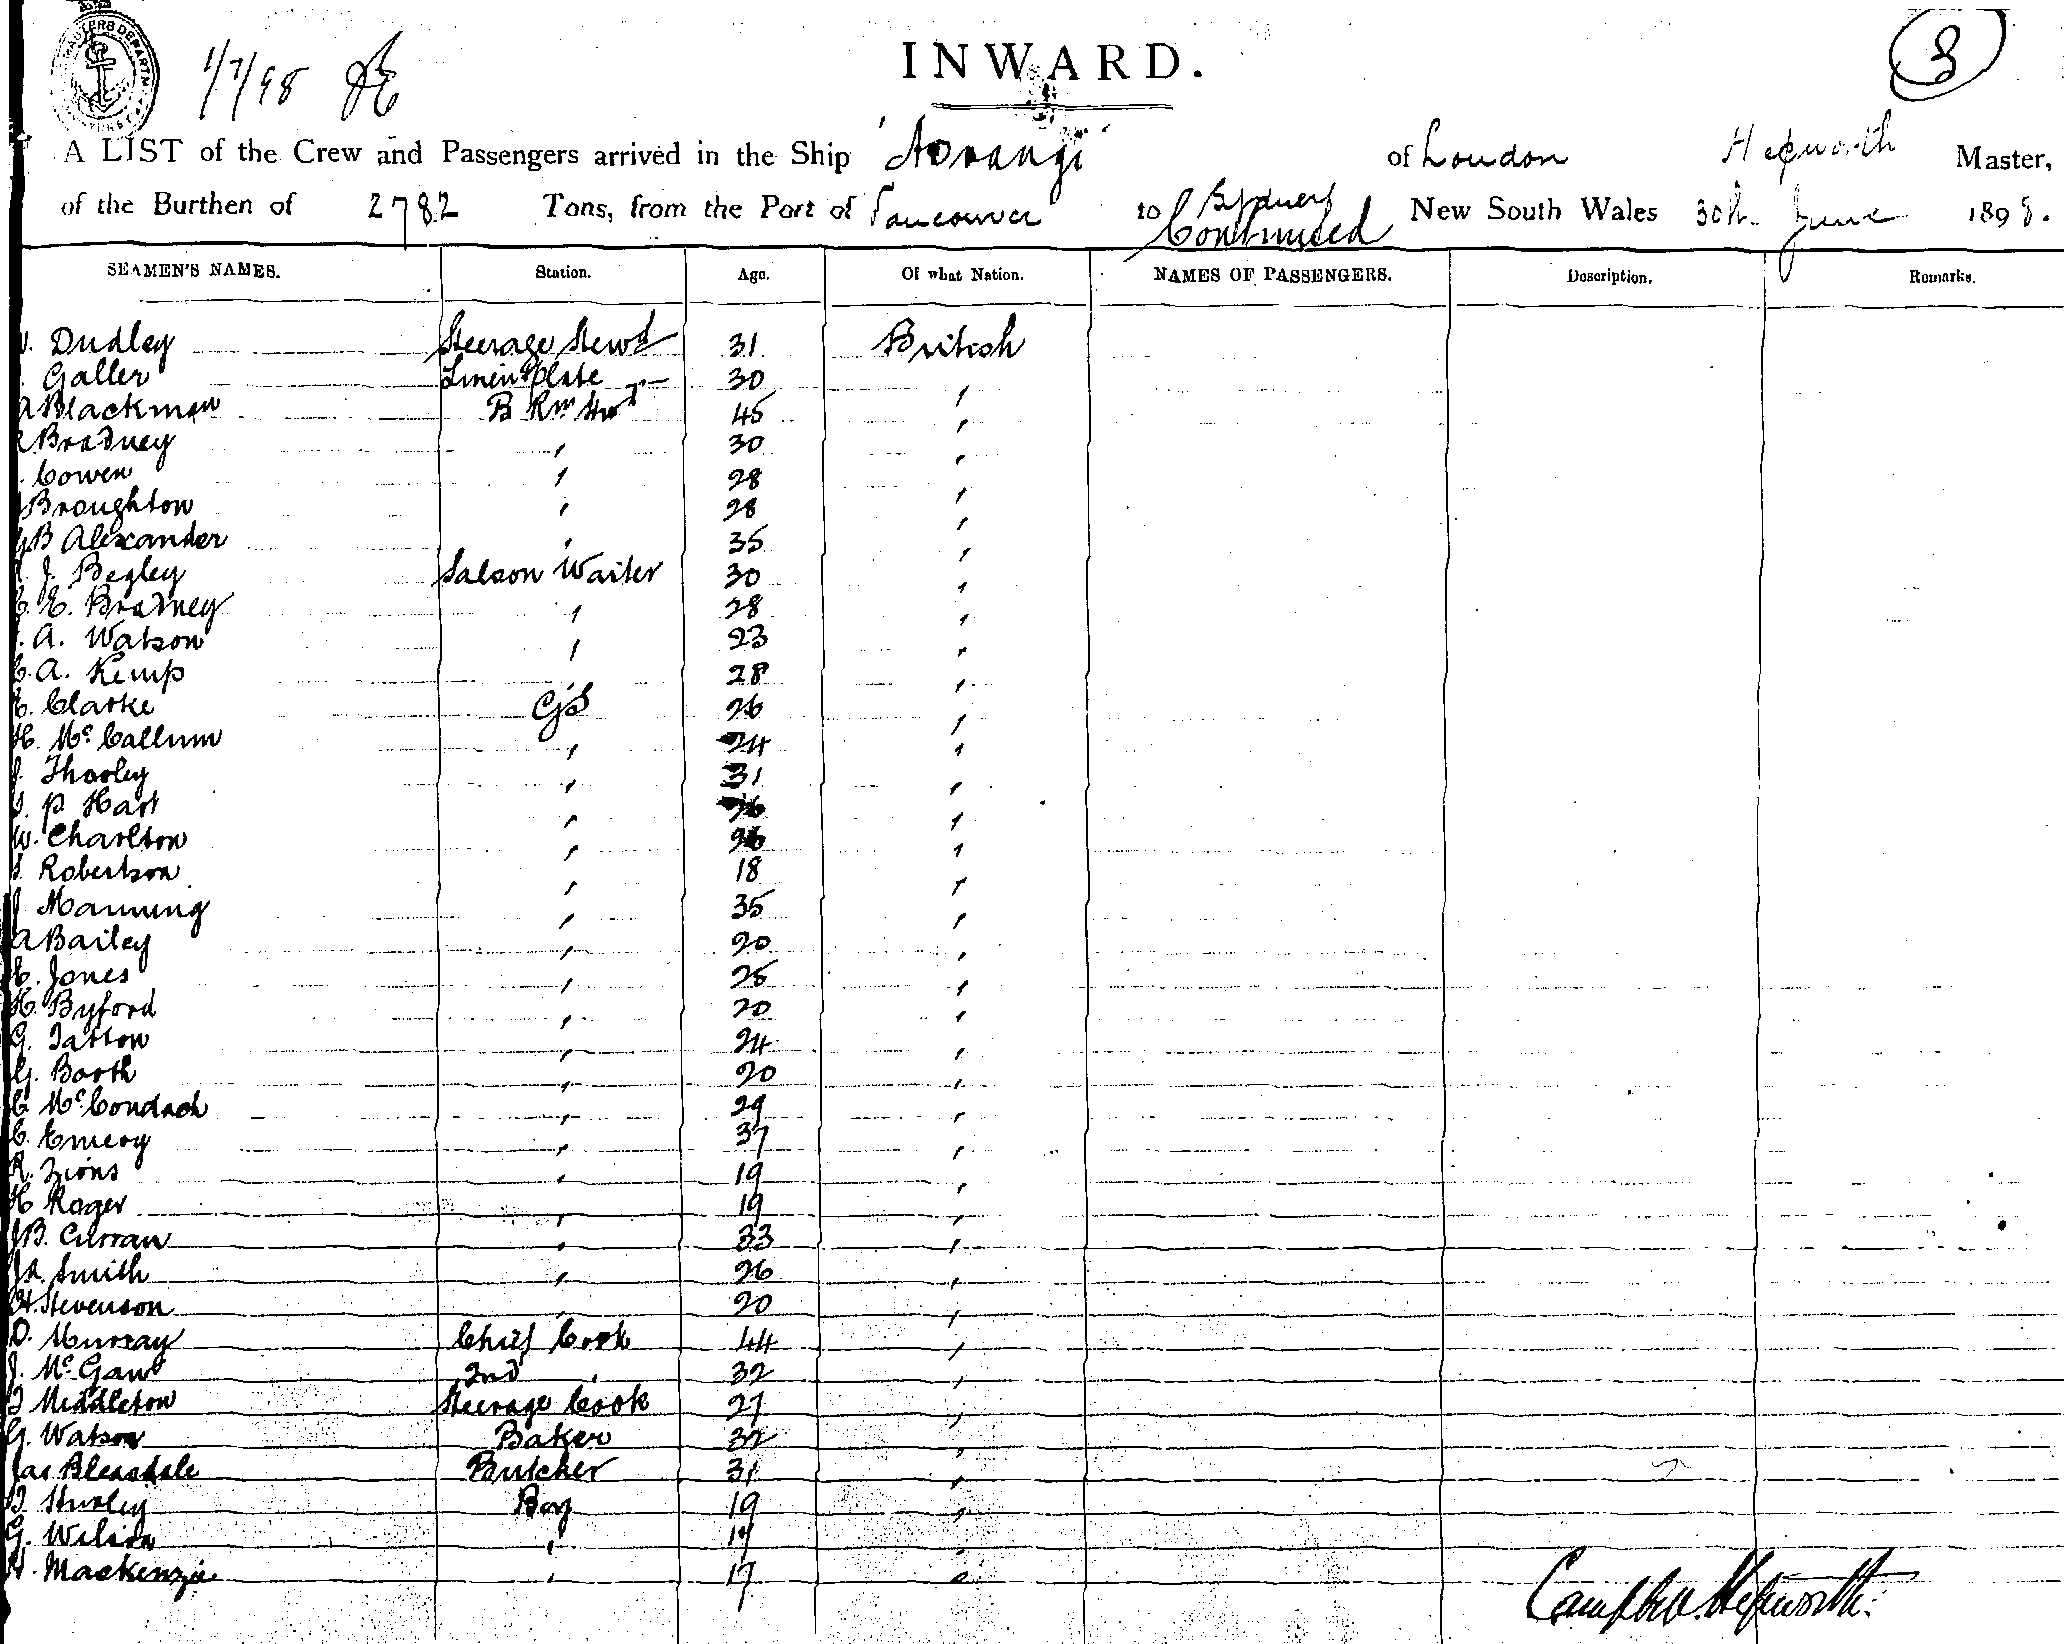 1/7/98
INWARD.
3
A LIST of the Crew and Passengers arrived in the Ship 'Aorangi' of London Hepworth Master,
of the Burthen of 2782 Tons, from the Port of Vancouver to Sydney New South Wales 30th June 1898.
Continued
SEAMEN'S NAMES. Station. Age. Of what Nation. NAMES OF PASSENGERS. Description. Remarks.
Dudley Steerage Stewd 31 British
Galler Linen & Plate 30 "
A Blackman B Rm Stwd 45 "
Bradney " 30 "
Cowen " 28 "
Broughton " 28 "
B Alexander " 35 "
J. Begley Saloon Waiter 30 "
C. E. Bradney " 28 "
A. Watson " 23 "
C. A. Kemp " 28 "
E. Clarke G.S 26 "
H. McCallum " 24 "
J. Thorley " 31 "
S. P. Hart " 26 "
W. Charlton " 26 "
S. Robertson " 18 "
J Manning " 35 "
A Bailey " 20 "
E. Jones " 25 "
H. Byford " 20 "
G. Tatton " 24 "
G. Booth " 20 "
C McCondach " 29 "
C. Emery " 37 "
R. Zions " 19 "
H Roger " 19 "
J B. Curran " 33 "
Js. Smith " 26 "
H. Stevenson " 20 "
D. Murray Chief Cook 44 "
J. McGaw 2nd " 32 "
T Middleton Steerage Cook 27 "
G. Watson Baker 32 "
Jas Bleasdale Butcher 31 "
Hurley Boy 19 "
G. Wilson " 17 "
H. Mackenzie " 17 "
Campbell Hepworth.